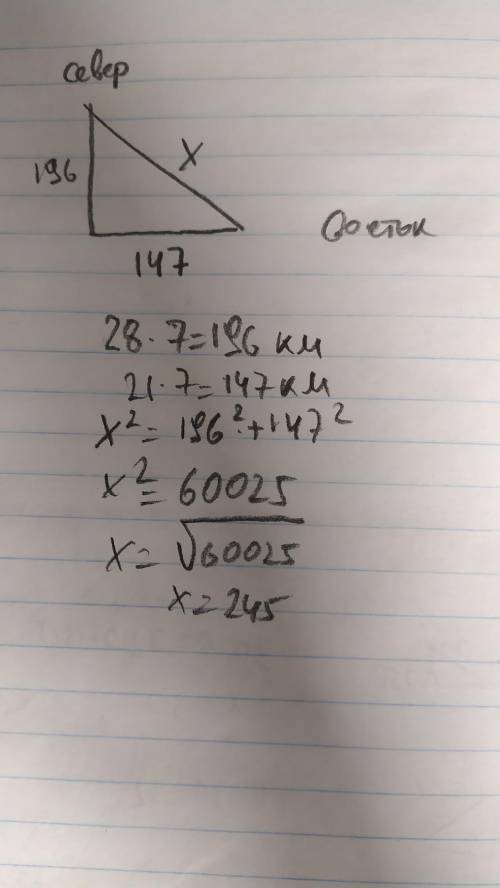 север
196
X
Восток
147
28 · 7 = 196 км
21 · 7 = 147 км
x² = 196² + 147²
x² = 60025
x = √60025
x = 245